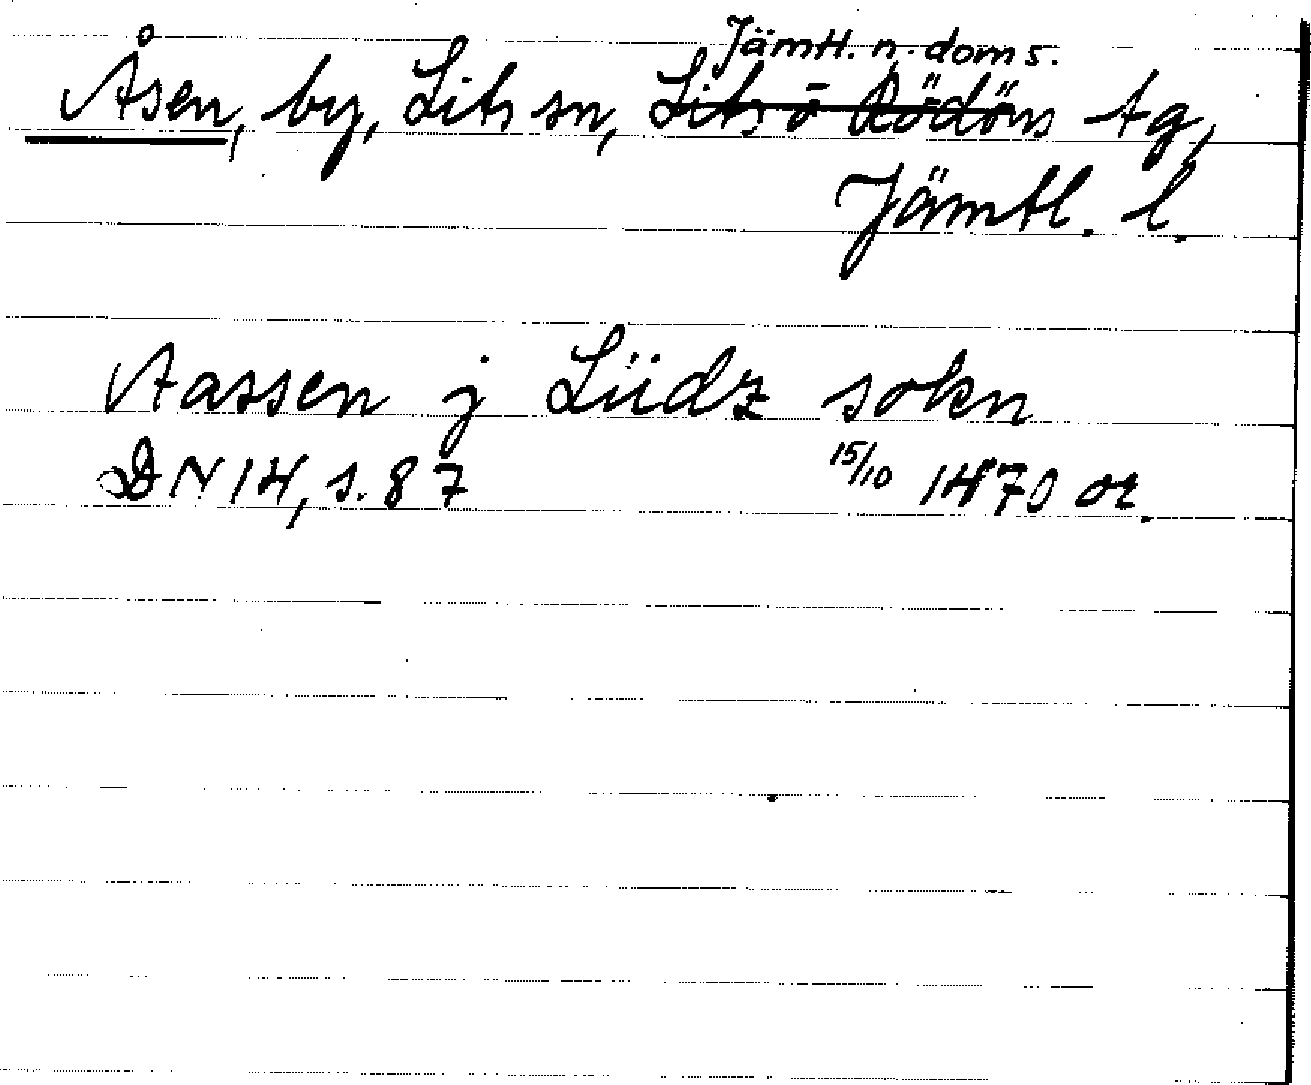 Jämtl. n. doms.
Åsen, by, Lits sn, Lits o Rödöns tg,
Jämtl. l.
Aassen j Lüdz sokn
DN 14, s. 87 15/10 1470 or.